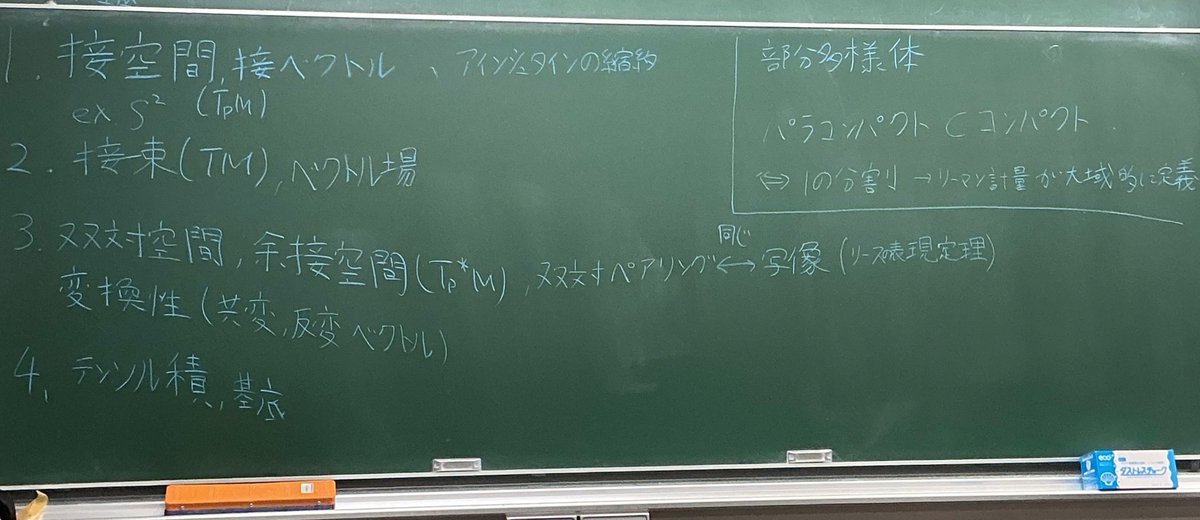 1. 接空間, 接ベクトル 、アインシュタインの縮約
ex S² (TpM)
2. 接束(TM), ベクトル場
3. 双対空間, 余接空間(Tp*M), 双対ペアリング ↔ 写像 (リースの表現定理)
同じ
変換性(共変, 反変ベクトル)
4. テンソル積, 基底
部分多様体
パラコンパクト ⊂ コンパクト
⇔ 1の分割 → リーマン計量が大域的に定義
eco
ダストレスチョーク